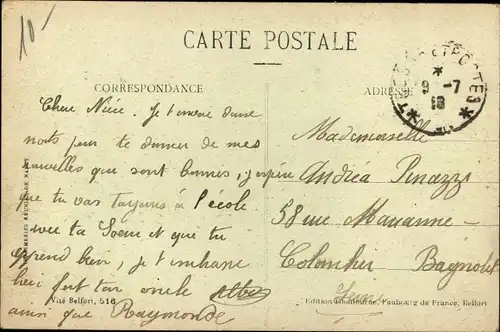 10-
CARTE POSTALE
CORRESPONDANCE
ADRESSE
9-7
18
Chere Niéce. Je t'envoie deux
mots pour te donner de mes
nouvelles qui sont bonnes, j'espère
que tu vas toujours à l'école
avec ta Soeur et que tu
apprend bien, je t'embrasse
bien fort ton oncle
ainsi que Raymonde
Mademoiselle
Andréa Pinazzi
58 rue Marianne
Colombier Bagnolet
Seine
Visé Belfort, 516
Faubourg de France, Belfort